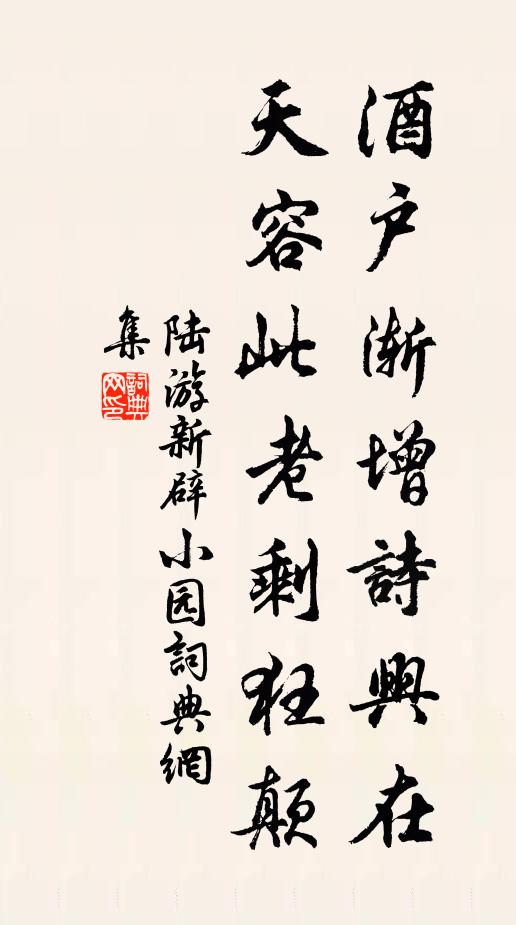 酒户渐增詩興在
天容此老剩狂颠
陆游新辟小园詞典網
集
詞典网印